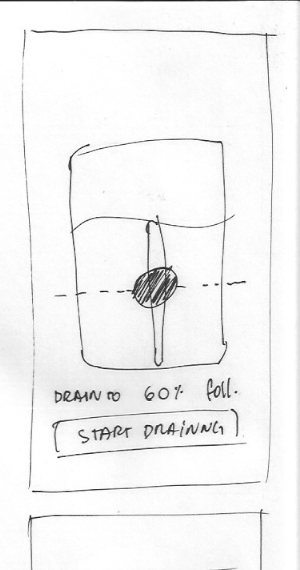 DRAIN TO 60% full.
START DRAINING